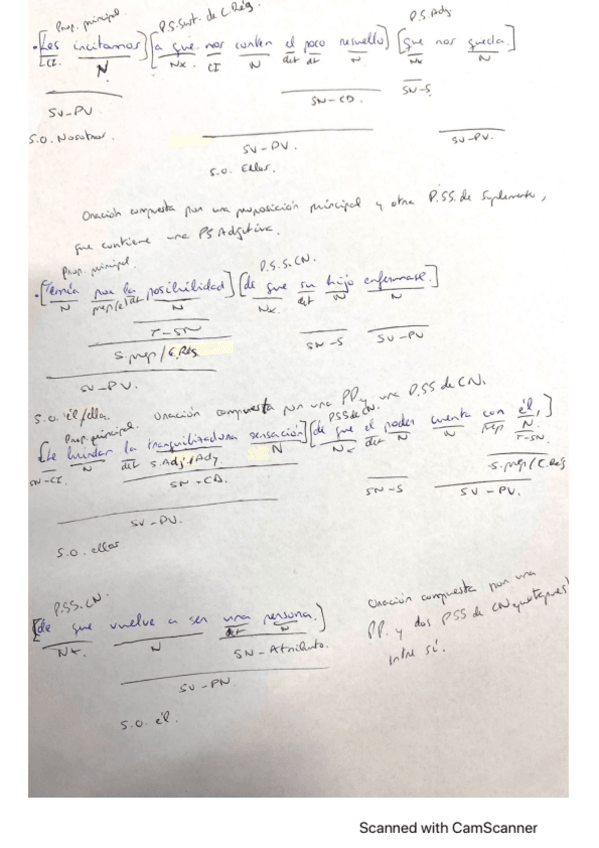 Prop. principal P.S.Sust. de C.Rég. P.S.Adj
• [Les incitamos] [a que nos corten el poco resuello] [que nos queda.]
C.I. N Nx. CI N det N Nx N
SN-CD. SN-S.
SV-PV.
S.O. Nosotros. SV-PV. SV-PV.
S.O. Ellos.
Oración compuesta por una proposición principal y otra P.SS. de Suplemento,
que contiene una PS Adjetiva.
Prop. principal. P.S.S.CN.
• [Temía por la posibilidad] [de que su hijo enfermase.]
N prep/e det N Nx. det N N
T-SN
S.prep/C.Rég. SN-S SV-PV
SV-PV.
S.O. él/ella. Oración compuesta por una PP y una P.SS de CN.
Prop. principal. PSS de CN.
[Le hurdan la tranquilizadora sensación] [de que el poder cuenta con él,]
N det S.Adj/Ady. N Nx det N N prep N
SN-CI. T-SN.
SN-CD. SN-S S.prep/C.Rég
SV-PV. SV-PV.
S.O. ellos
P.SS.CN.
[de que vuelve a ser una persona.]
Nx. N det N
SN-Atributo.
SV-PN.
S.O. él.
Oración compuesta por una
PP. y dos PSS de CN yuxtapuest
entre sí.
Scanned with CamScanner